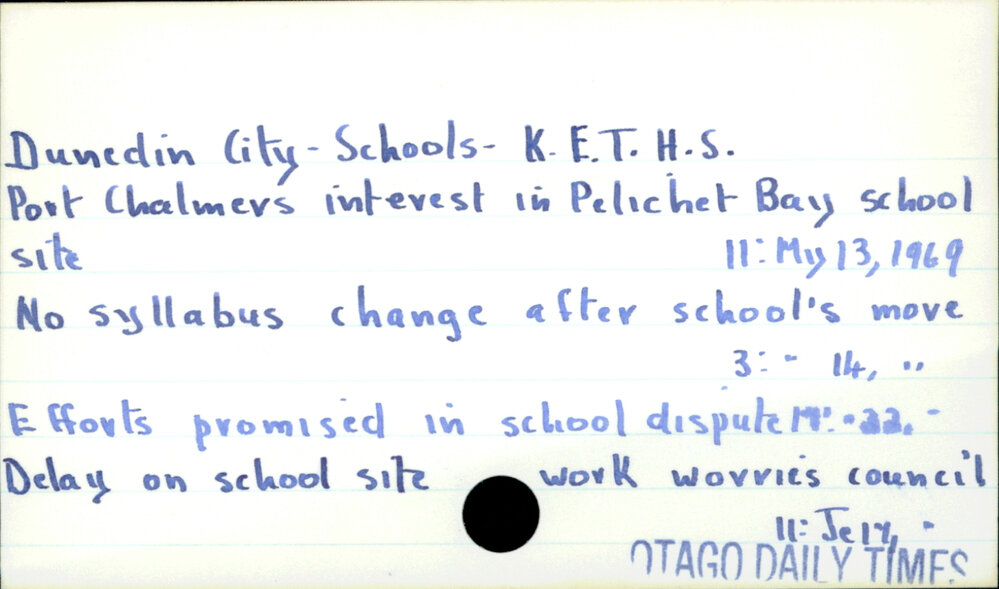 Dunedin City - Schools - K. E. T. H. S.
Port Chalmers interest in Pelichet Bay school
site 11: My 13, 1969
No syllabus change after school's move
3: " 14, "
Efforts promised in school dispute "
Delay on school site work worries council
11: Je "
OTAGO DAILY TIMES